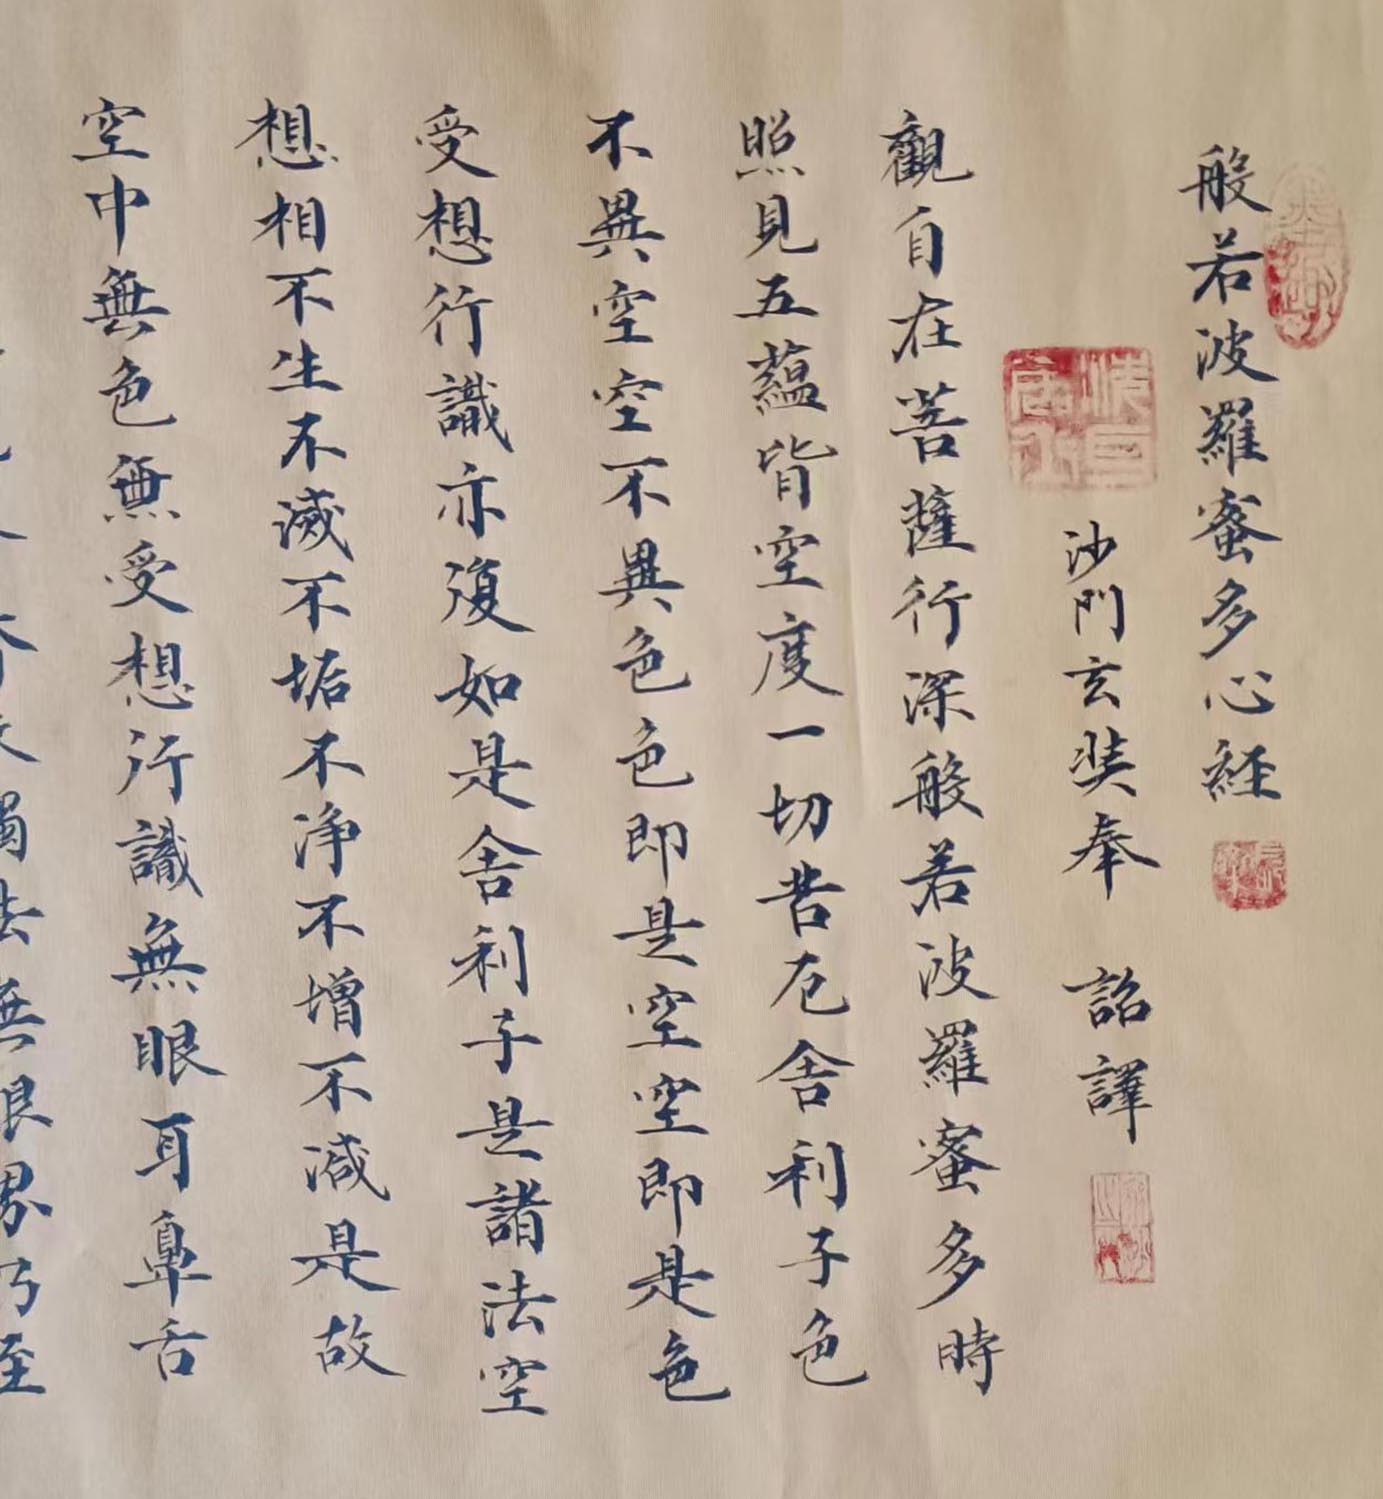 般若波羅蜜多心経
沙門玄奘奉 詔譯
觀自在菩薩行深般若波羅蜜多時
照見五蘊皆空度一切苦厄舍利子色
不異空空不異色色即是空空即是色
受想行識亦復如是舍利子是諸法空
想相不生不滅不垢不浄不增不減是故
空中無色無受想行識無眼耳鼻舌
觸法無眼界乃至